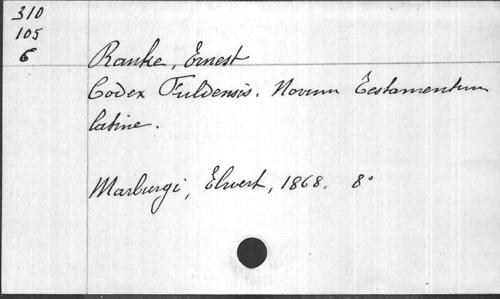 310
105
6
Ranke, Ernest
Codex Fuldensis. Novum Testamentum
latine.
Marburgi, Elwert, 1868. 8°